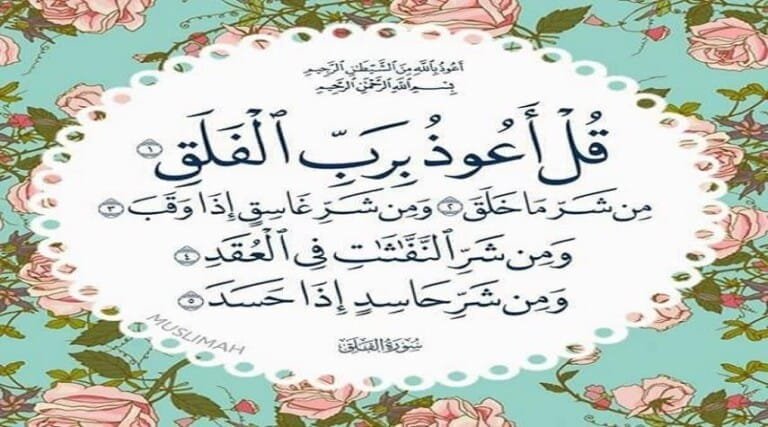 أَعُوذُ بِاللَّهِ مِنَ الشَّيْطَٰنِ الرَّجِيمِ
بِسْمِ اللَّهِ الرَّحْمَٰنِ الرَّحِيمِ
قُلْ أَعُوذُ بِرَبِّ ٱلْفَلَقِ ١
مِن شَرِّ مَا خَلَقَ ٢ وَمِن شَرِّ غَاسِقٍ إِذَا وَقَبَ ٣
وَمِن شَرِّ ٱلنَّفَّٰثَٰتِ فِى ٱلْعُقَدِ ٤
وَمِن شَرِّ حَاسِدٍ إِذَا حَسَدَ ٥
سُورَةُ الفَلَقِ
MUSLIMAH